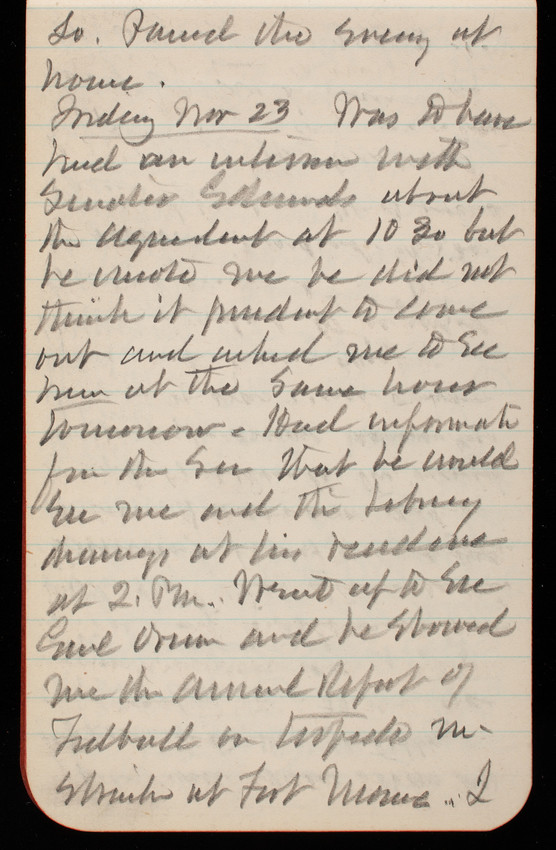 so. Passed the evening at
home.
Friday Nov 23 Was to have
had an interview with
Senator Edmunds about
the aqueduct at 10 30 but
he wrote me he did not
think it prudent to come
out and asked me to see
him at the same hour
tomorrow. Had informati
from the Sec that he would
see me and the Library
drawings at his residence
at 2. P.M. Went up to see
Genl Drum and he showed
me the annual Report of
on Torpedo in-
at Fort Monroe. I